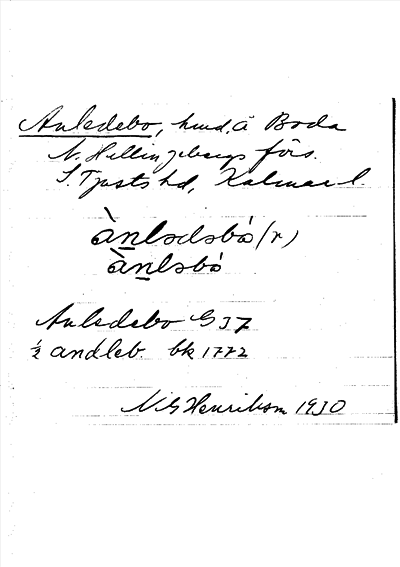 Anledebo, hmd, å Boda
N. Hellingebergs förs.
S. Tjusts hd, Kalmar l.
ànledebó (r)
ànlebó
Anledebo G 37
½ andleb. bk 1772
N G Henrikson 1930